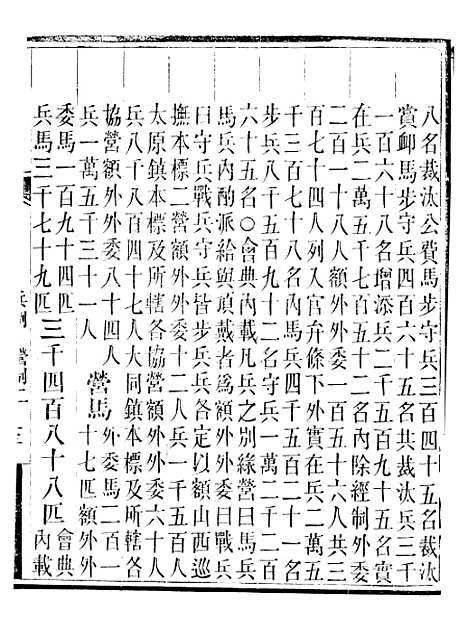 八名裁汰公費馬步守兵三百四十五名裁汰
賞卹馬步守兵四百六十五名共裁汰兵三千
一百六十八名增添兵二千五百九十五名實
在兵二萬五千七百五十二名內除經制外委
二百一十八人額外外委一百五十六人共三
百七十四人列入官弁條下外實在兵二萬五
千三百七十八名內馬兵四千五百二十一名
步兵八千五百九十二名守兵一萬二千二百
六十五名○會典內載凡兵之別綠營曰馬兵
馬兵內酌派給與頂戴者爲額外外委曰戰兵
曰守兵戰兵守兵皆步兵各定以額山西巡
撫本標二營額外外委十二人兵一千五百人
太原鎮本標及所轄各協營額外外委六十人
兵八千八百四十七人大同鎮本標及所轄各
協營額外外委八十四人
兵一萬五千三十一人 營馬外委馬二百一
十七匹額外外
委馬一百九十四匹三千四百八十八匹會典
內載
兵馬三千七十九匹
兵制 營制二 三